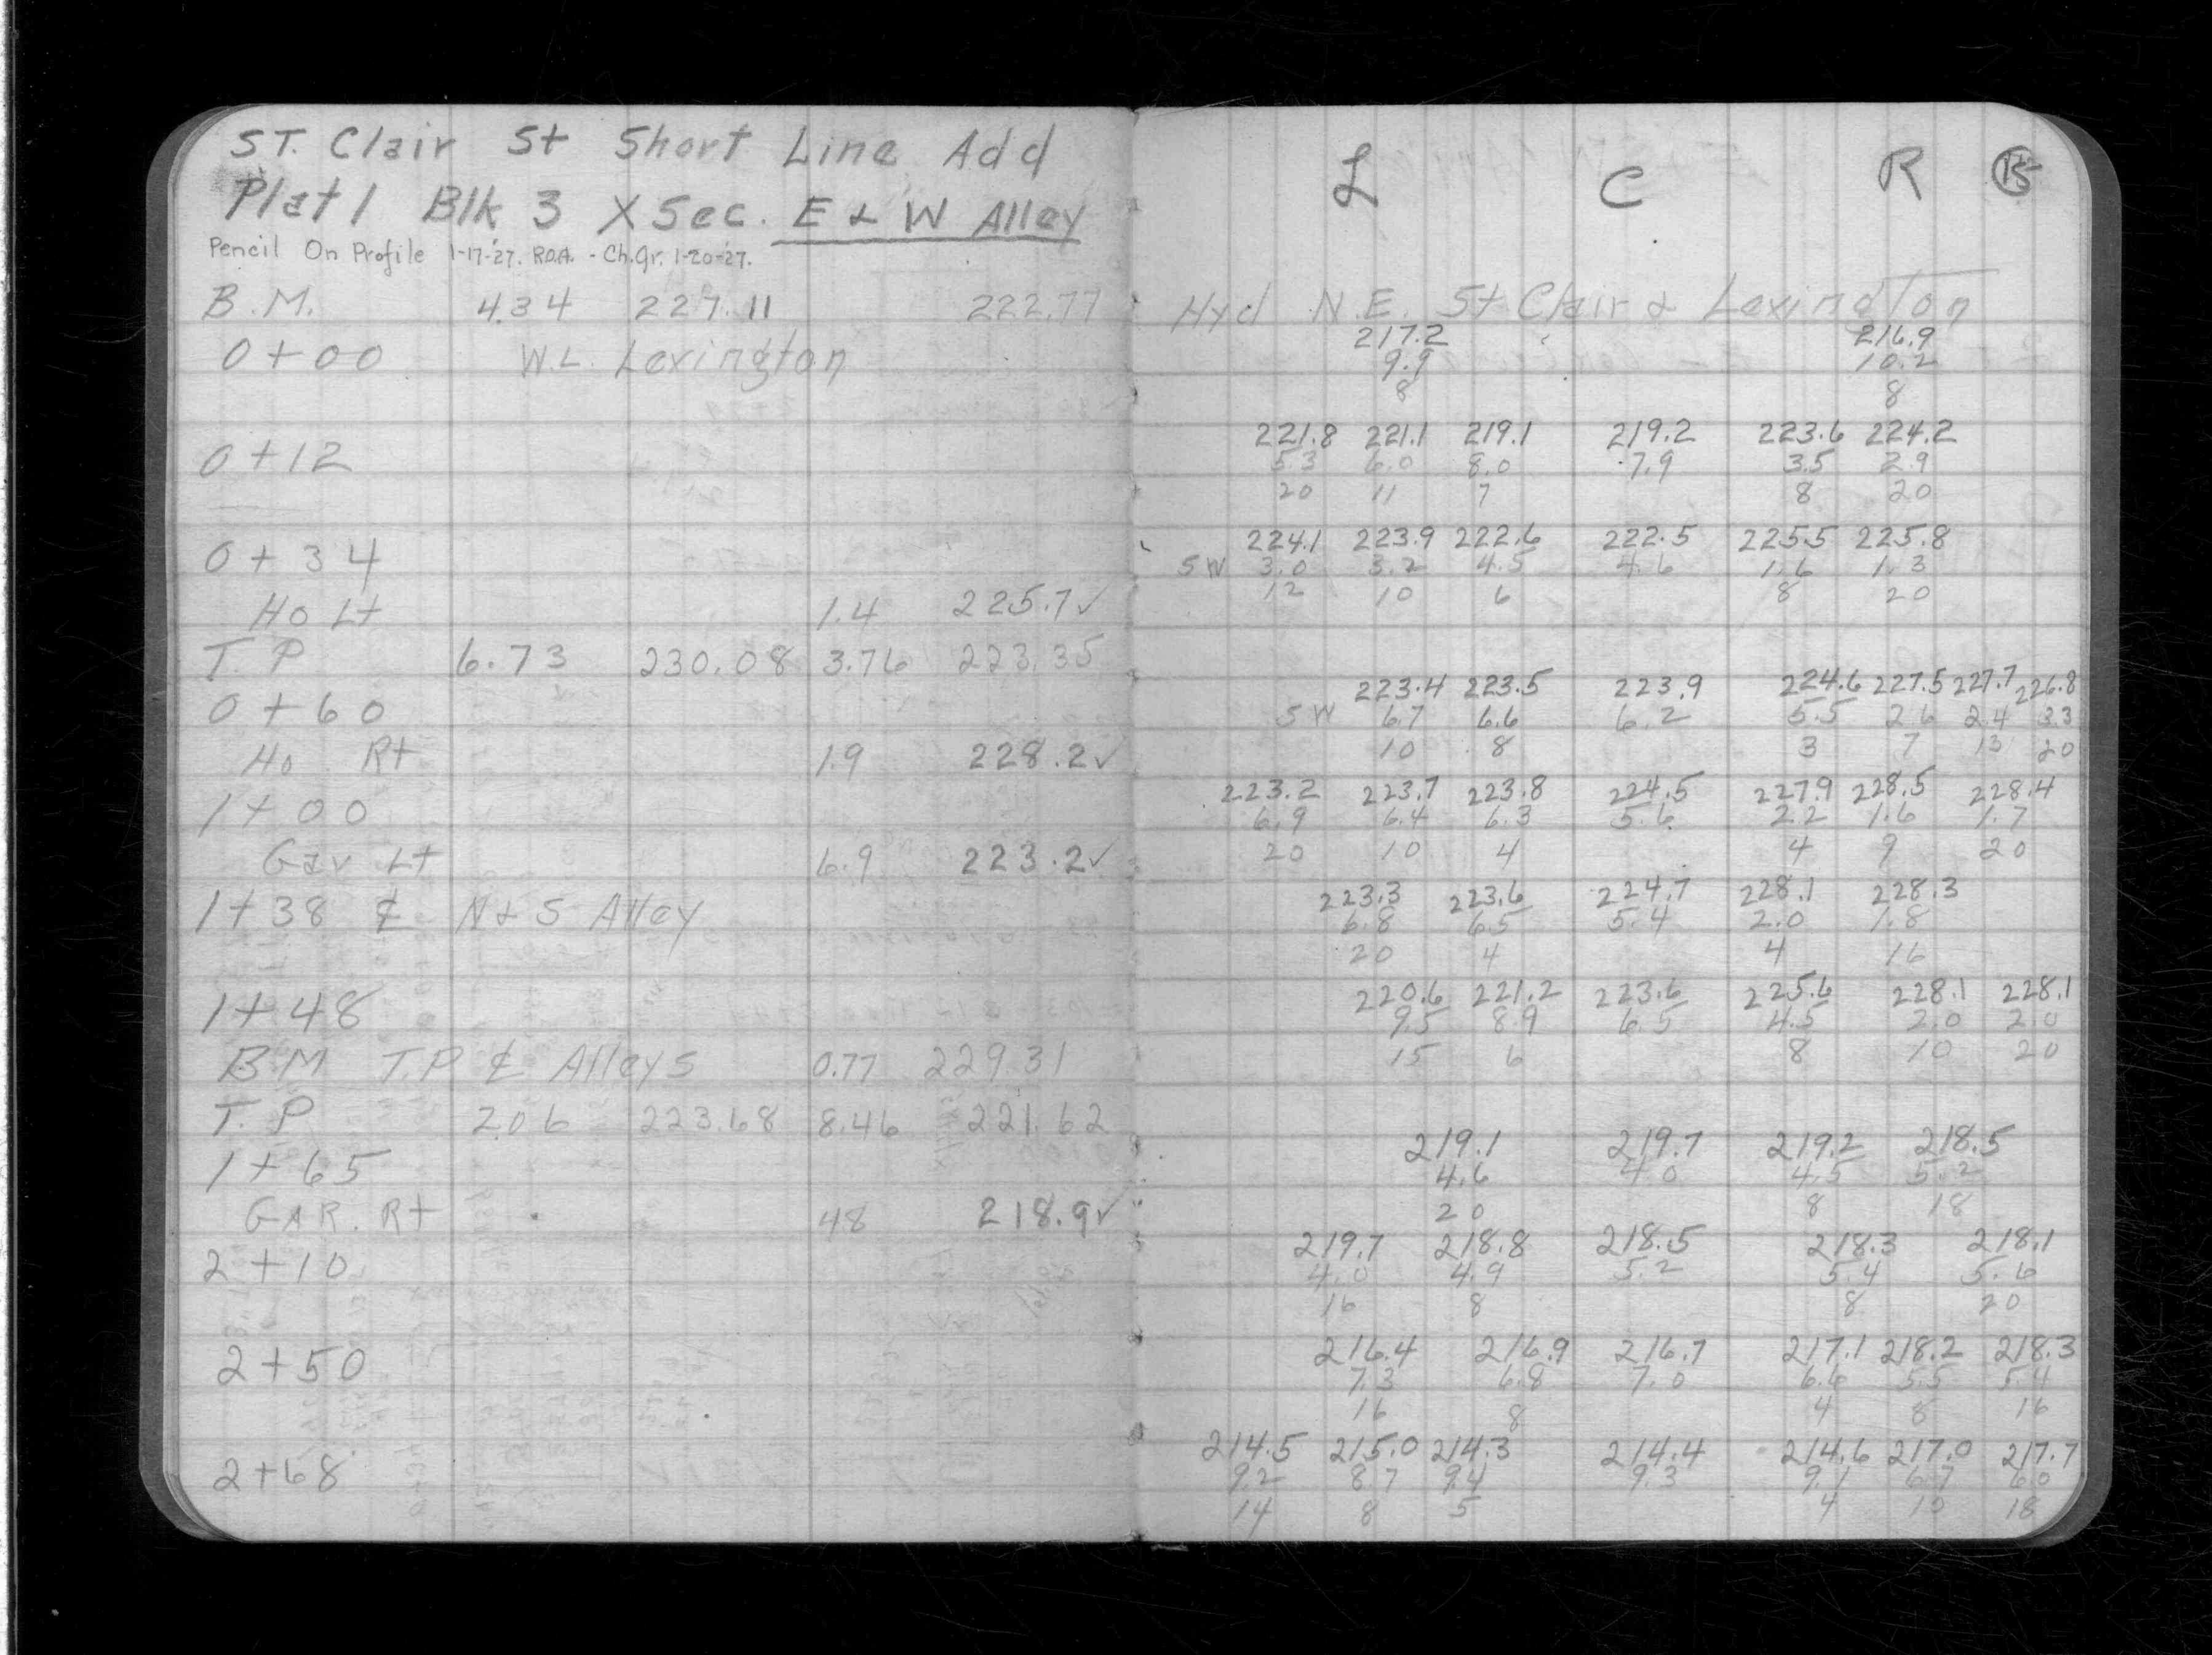 ST. Clair St Short Line Add
Plat 1 Blk 3 X Sec. E & W Alley
Pencil On Profile 1-17-'27. R.O.A. - Ch.Gr. 1-20-'27.
B.M. 4.34 227.11 222.77
0+00 W.L. Lexington
0+12
0+34
Ho Lt 1.4 225.7✓
T.P 6.73 230.08 3.76 223.35
0+60
Ho Rt 1.9 228.2✓
1+00
Gar Lt 6.9 223.2✓
1+38 ℄ N & S Alley
1+48
B.M T.P ℄ Alleys 0.77 229.31
T.P 2.06 223.68 8.46 221.62
1+65
GAR. Rt 4.8 218.9✓
2+10
2+50
2+68
L C R 15
Hyd N.E. St Clair & Lexington
217.2 216.9
9.9 10.2
8 8
221.8 221.1 219.1 219.2 223.6 224.2
5.3 6.0 8.0 7.9 3.5 2.9
20 11 7 8 20
224.1 223.9 222.6 222.5 225.5 225.8
SW 3.0 3.2 4.5 4.6 1.6 1.3
12 10 6 8 20
223.4 223.5 223.9 224.6 227.5 227.7 226.8
SW 6.7 6.6 6.2 5.5 2.6 2.4 3.3
10 8 3 7 13 20
223.2 223.7 223.8 224.5 227.9 228.5 228.4
6.9 6.4 6.3 5.6 2.2 1.6 1.7
20 10 4 4 9 20
223.3 223.6 224.7 228.1 228.3
6.8 6.5 5.4 2.0 1.8
20 4 4 16
220.6 221.2 223.6 225.6 228.1 228.1
9.5 8.9 6.5 4.5 2.0 2.0
15 6 8 10 20
219.1 219.7 219.2 218.5
4.6 4.0 4.5 5.2
20 8 18
219.7 218.8 218.5 218.3 218.1
4.0 4.9 5.2 5.4 5.6
16 8 8 20
216.4 216.9 216.7 217.1 218.2 218.3
7.3 6.8 7.0 6.6 5.5 5.4
16 8 4 8 16
214.5 215.0 214.3 214.4 214.6 217.0 217.7
9.2 8.7 9.4 9.3 9.1 6.7 6.0
14 8 5 4 10 18